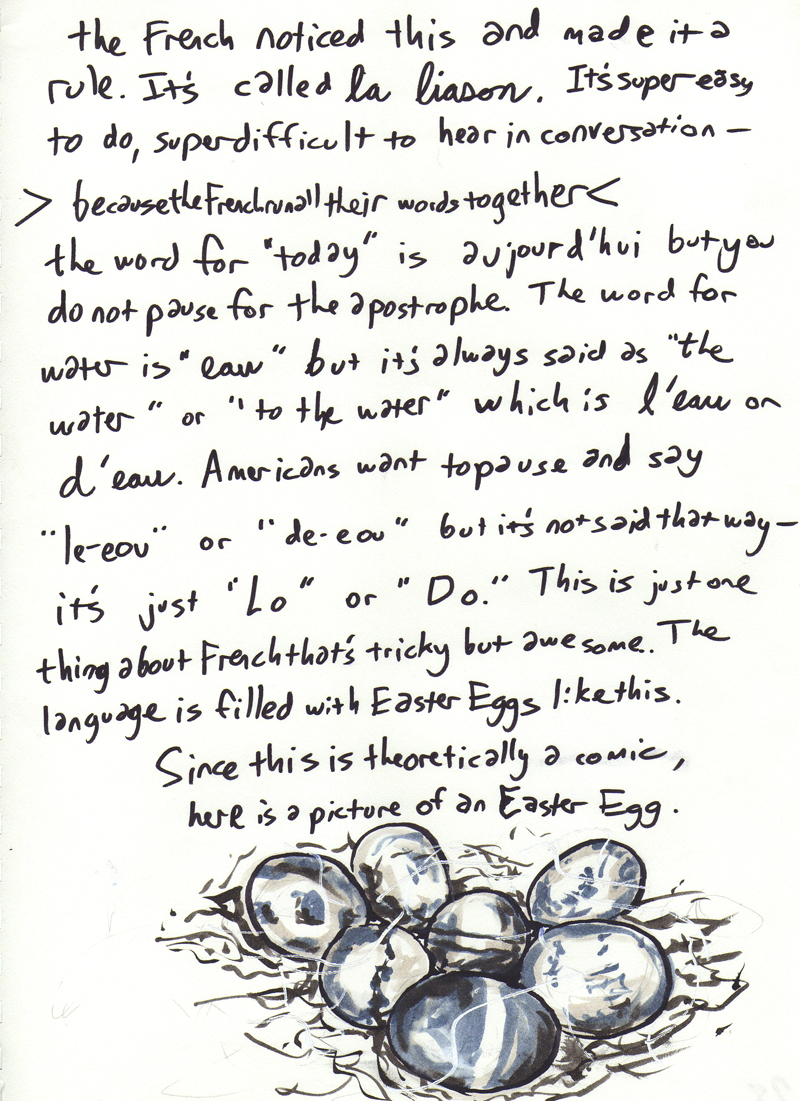 the French noticed this and made it a
rule. It's called la liason. It's super easy
to do, super difficult to hear in conversation—
> because the French run all their words together <
the word for "today" is aujourd'hui but you
do not pause for the apostrophe. The word for
water is "eau" but it's always said as "the
water" or "to the water" which is l'eau or
d'eau. Americans want to pause and say
"le-eou" or "de-eou" but it's not said that way—
it's just "Lo" or "Do." This is just one
thing about French that's tricky but awesome. The
language is filled with Easter Eggs like this.
Since this is theoretically a comic,
here is a picture of an Easter Egg.